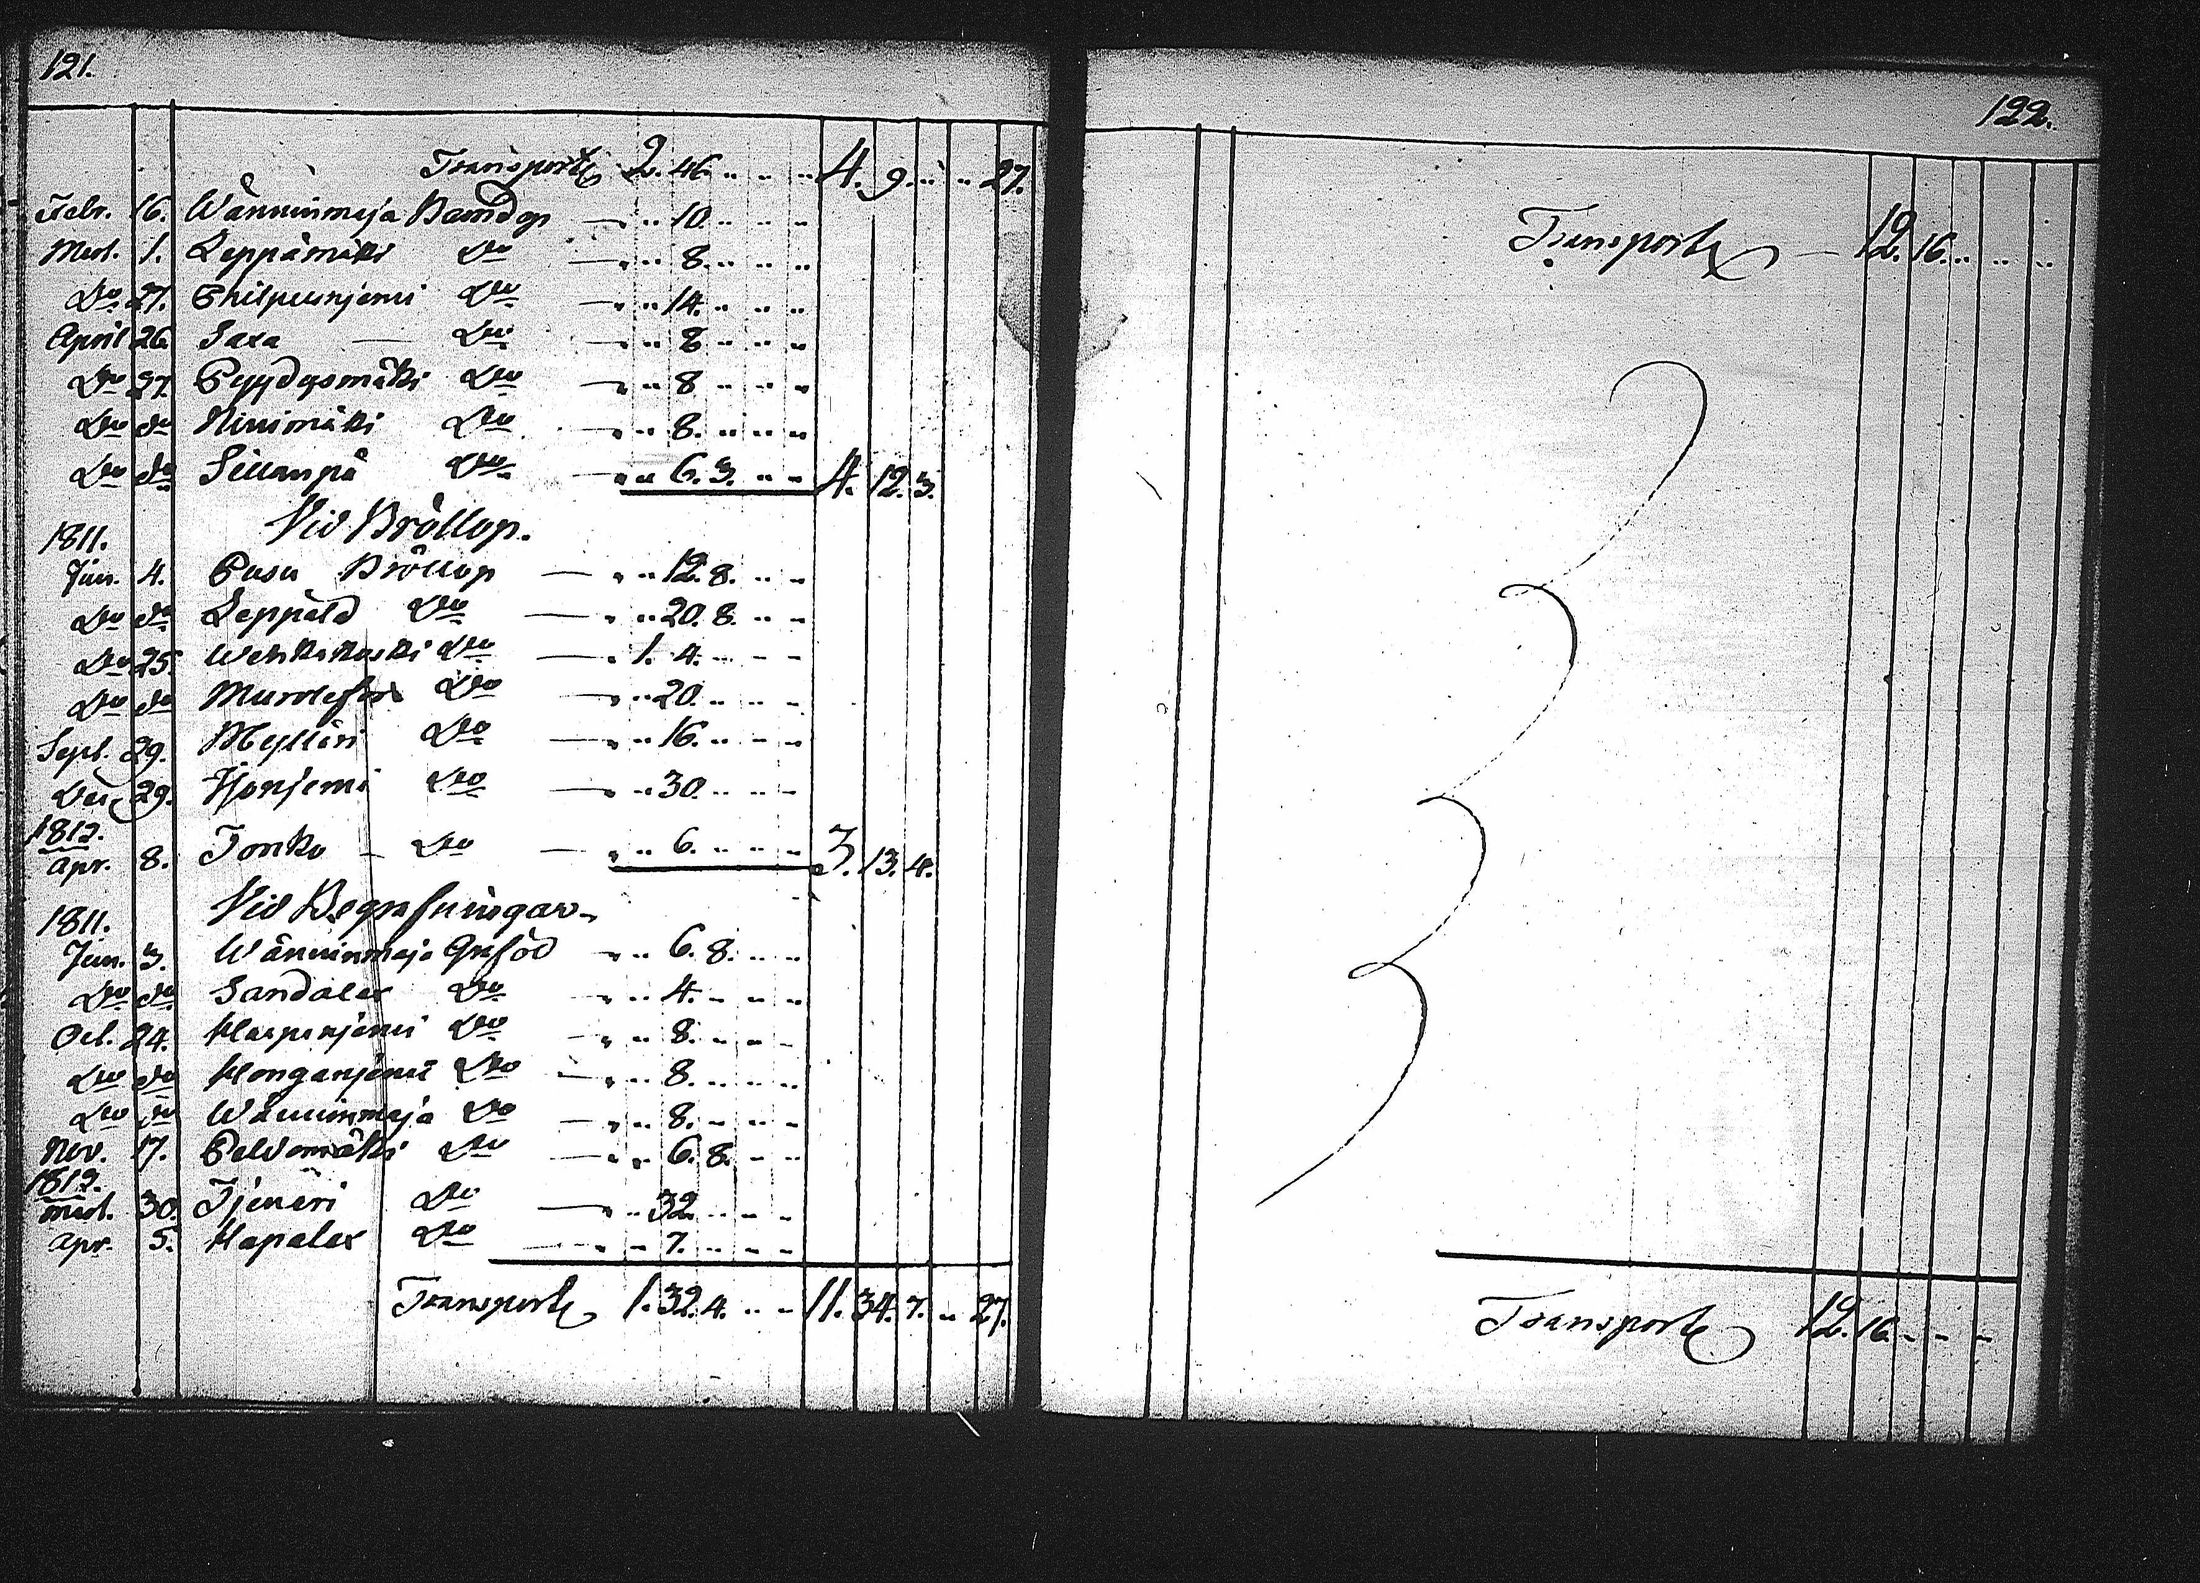 121.
Transporte 2. 46. .. .. .. 4. 9. .. .. 27.
Febr. 16. Wänninmaja Barndop — .. 10. .. .. ..
Mart. 1. Leppämäki Do — .. 8. .. .. ..
Do 27. Philpunjemi Do — .. 14. .. .. ..
April 26 Saxa — Do — .. 8 .. .. ..
Do 27. Pyydysmäki Do — .. 8 .. .. ..
Do do Ninimäki Do — .. 8. .. .. ..
Do do Sillanpä Do — .. 6. 3. .. .. 4. 12. 3.
Vid Bröllop.
1811.
Jan. 4. Pusu Bröllop — .. 12. 8. .. ..
Do do Leppälä Do — .. 20. 8. .. ..
Do 25. Wehkakoski Do — . 1. 4. .. .. ..
Do do Do — .. 20. .. .. ..
Sept. 29. Mylläri Do — .. 16. .. .. ..
Dec 29. Do — .. 30. .. .. ..
1812.
Apr. 8. Jonko — Do — .. 6. .. .. .. 3. 13. 4.
Vid Begrafningar
1811.
Jan. 3. Wänninmaja Grafod .. 6. 8. .. ..
Do do Sandalax Do .. 4. .. .. ..
Oct. 24. Haapanjemi Do — .. 8. .. .. ..
Do do Honganjemi Do — .. 8. .. .. ..
Do do Wänninmaja Do — .. 8. .. .. ..
Nov. 17. Peldomäki Do — .. 6. 8. .. ..
1812.
Mart. 30. Tjenäri Do — .. 32 .. .. ..
Apr. 5. Hapalax Do .. 7. .. .. ..
Transporte 1. 32. 4. .. .. 11. 34. 7. .. 27.
122.
Transporte — 12. 16. .. .. ..
Transporte 12. 16. .. .. ..